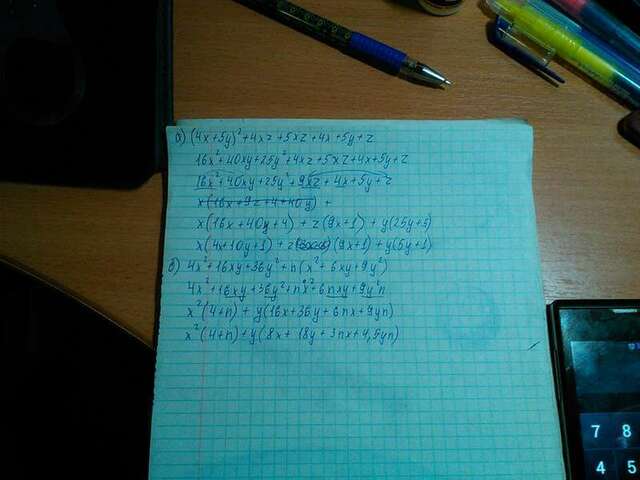 а) (4x+5y)²+4xz+5xz+4x+5y+z
16x²+40xy+25y²+4xz+5xz+4x+5y+z
16x²+40xy+25y²+9xz+4x+5y+z
x(16x+9z+4+40y) +
x(16x+40y+4)+z(9x+1)+y(25y+5)
x(4x+10y+1)+z(9x+1)+y(5y+1)
в) 4x²+16xy+36y²+n(x²+6xy+9y²)
4x²+16xy+36y²+nx²+6nxy+9y²n
x²(4+n)+y(16x+36y+6nx+9yn)
x²(4+n)+y(8x+18y+3nx+4,5yn)
7 8
4 5